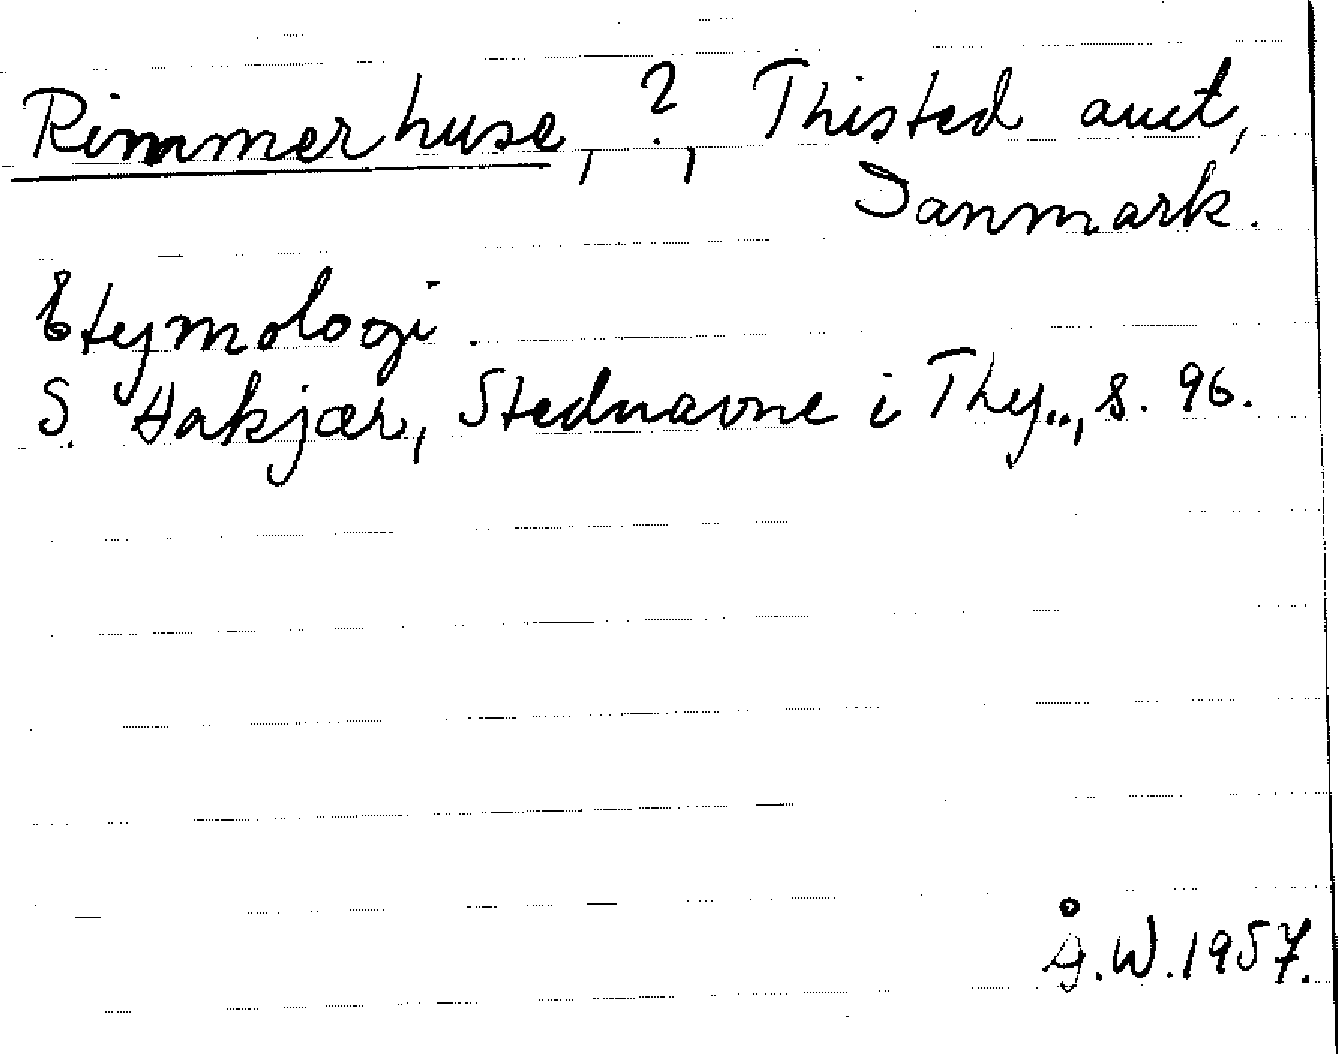 Rimmerhuse, ?, Thisted amt,
Danmark.
Etymologi.
S. Hakjær, Stednavne i Thy.., s. 96.
Å.W. 1957.